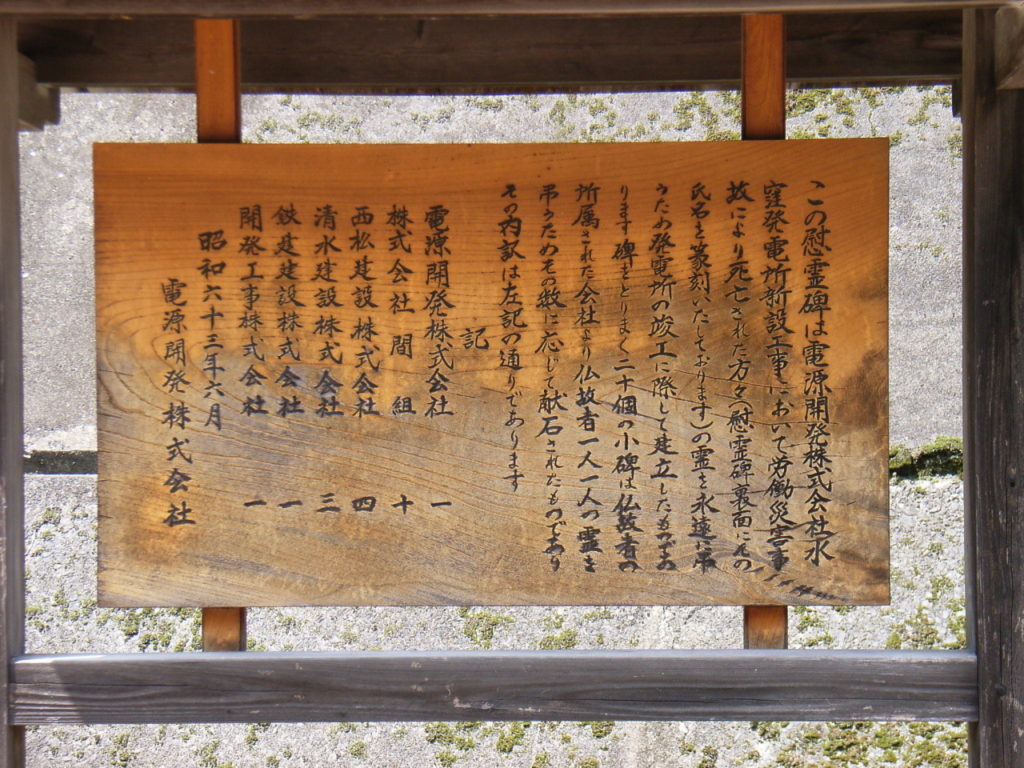 この慰霊碑は電源開発株式会社水
窪発電所新設工事において労働災害事
故により死亡された方々(慰霊碑裏面にその
氏名を篆刻いたしております)の霊を永遠に弔
うため発電所の竣工に際して建立したものであ
ります碑をとりまく二十個の小碑は仏故者の
所属された会社より仏故者一人一人の霊を
弔うためその数に応じて献石されたものであり
その内訳は左記の通りであります
記
電源開発株式会社 一
株式会社 間組 十
西松建設株式会社 四
清水建設株式会社 三
鉄建建設株式会社 一
開発工事株式会社 一
昭和六十三年六月
電源開発株式会社